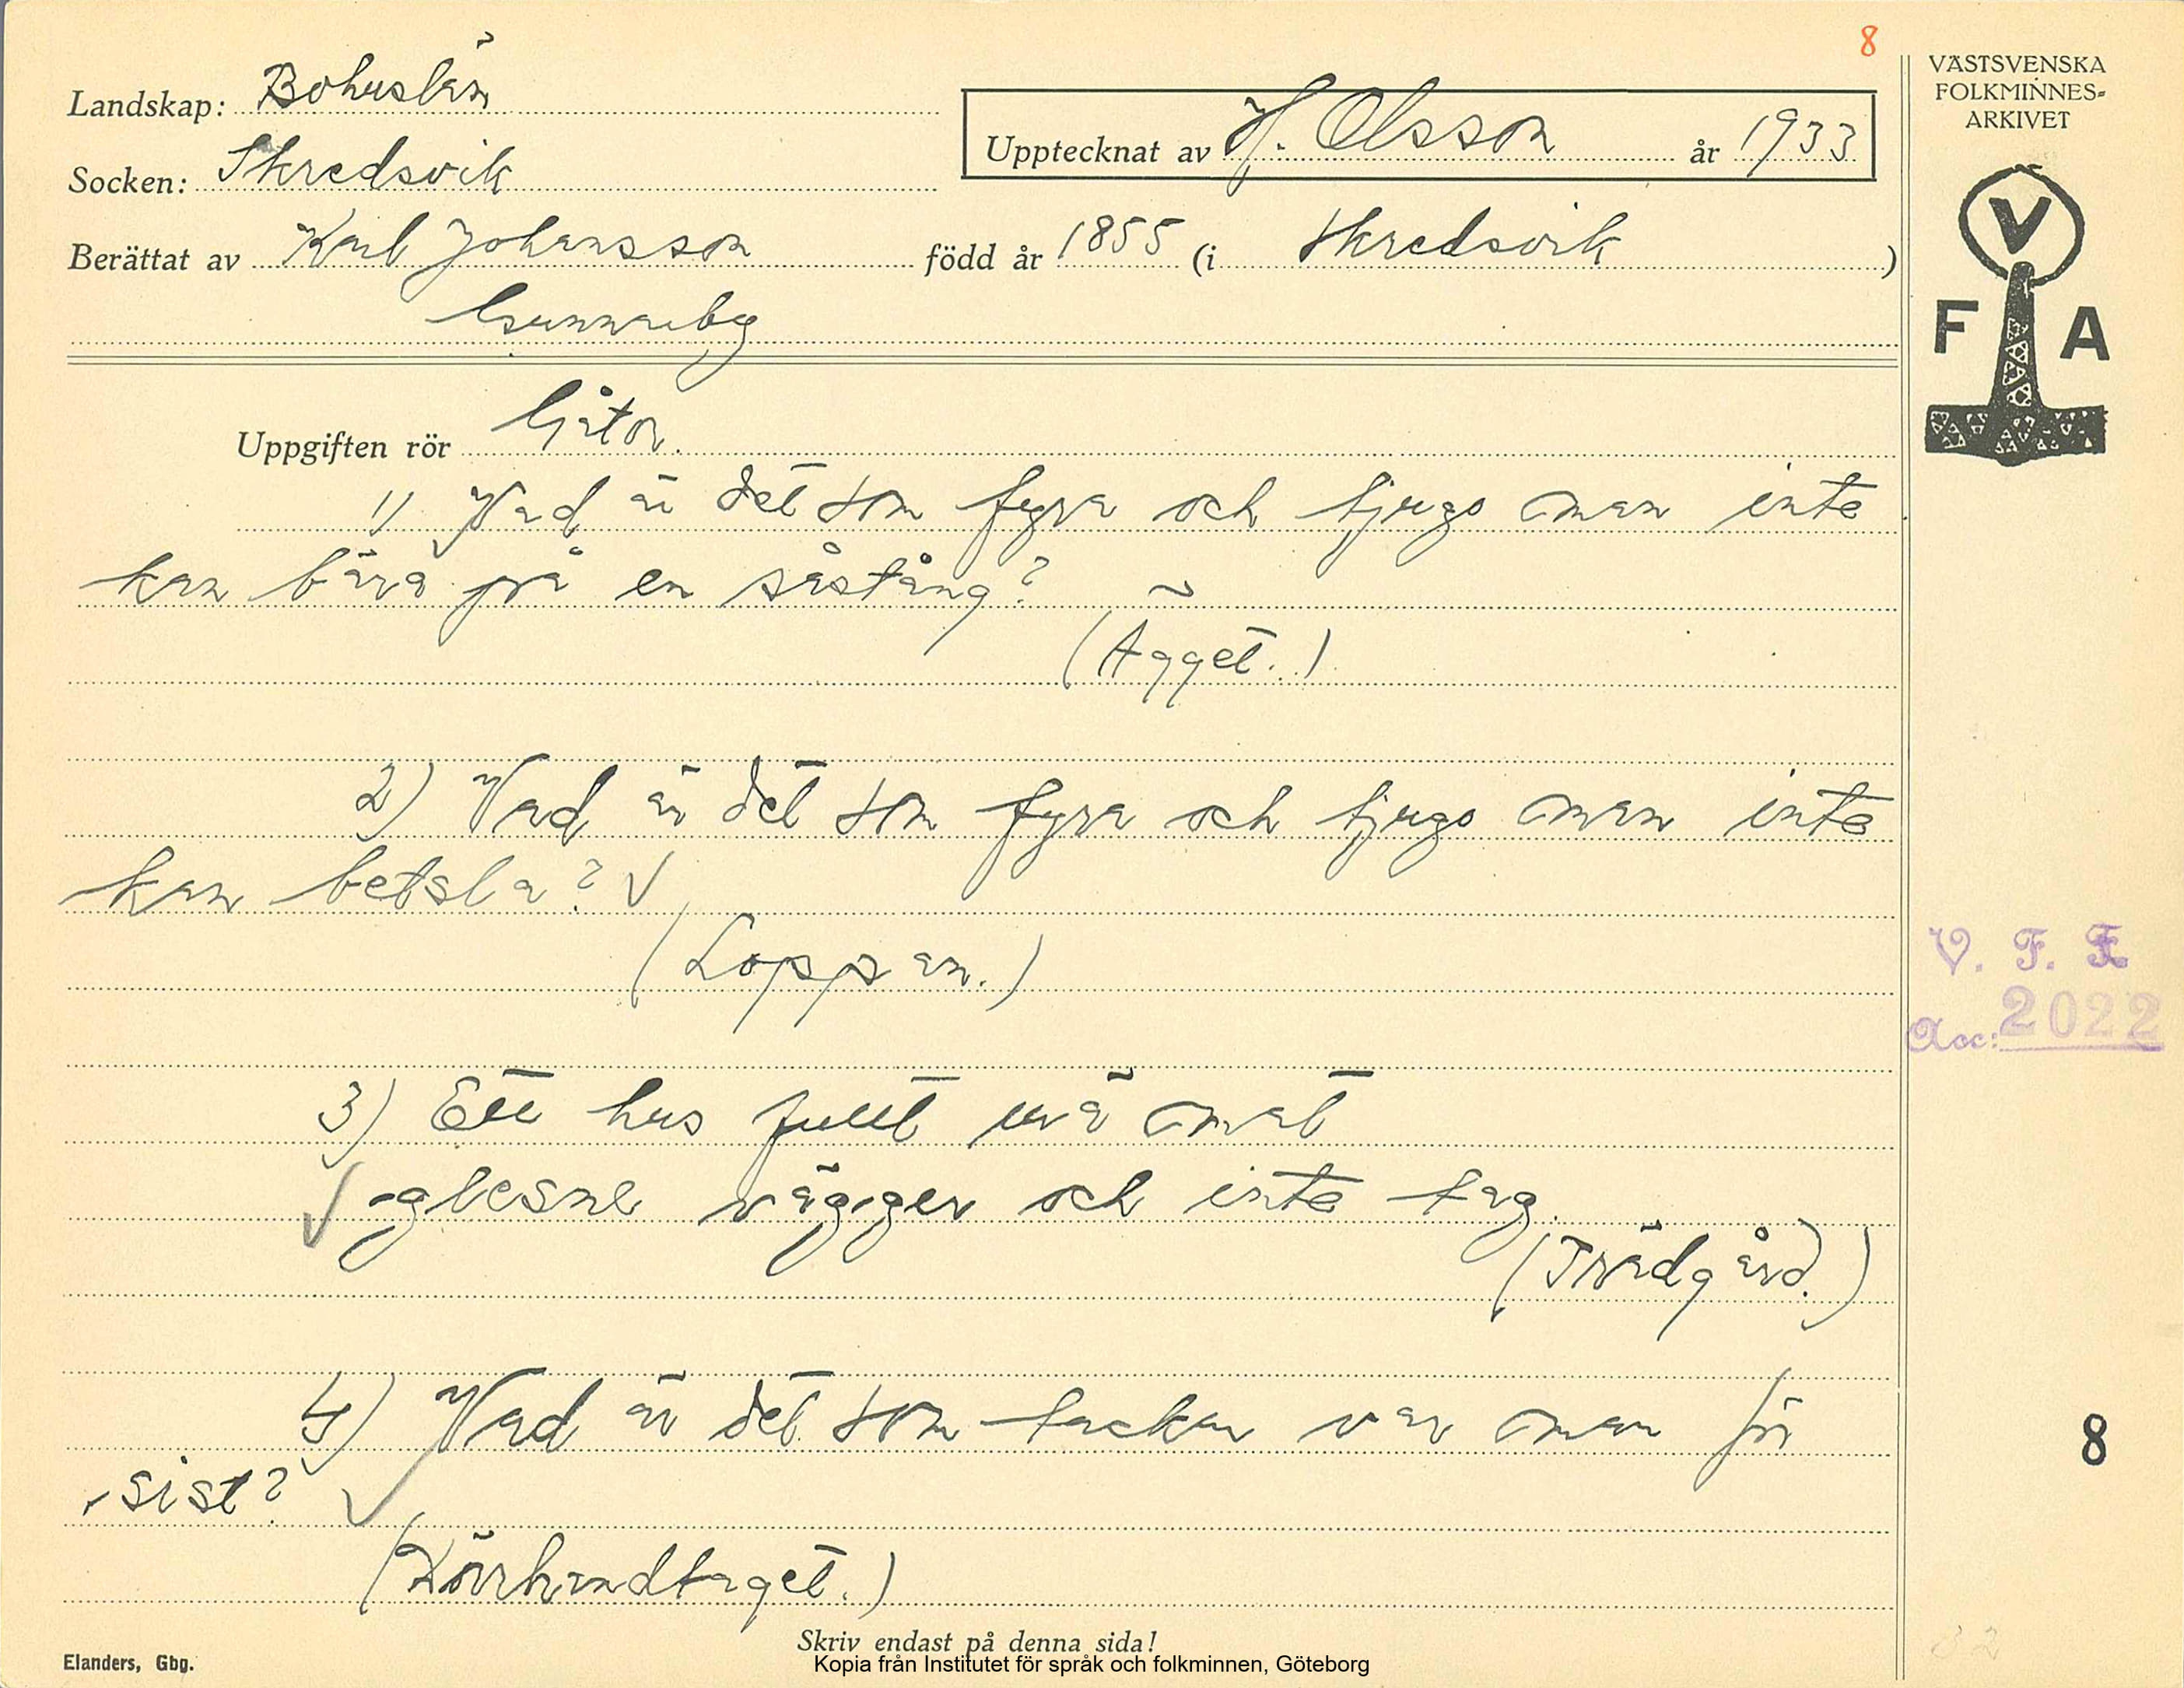 8
Landskap: Bohuslän
Upptecknat av H. Olsson år 1933
Socken: Skredsvik
Berättat av Karl Johansson född år 1855 (i Skredsvik)
Gunnarby
VÄSTSVENSKA
FOLKMINNES-
ARKIVET
V
F A
Uppgiften rör Gåtor.
1) Vad är det som fyra och tjugo man inte
kan bära på en såstång?
(Ägget.)
2) Vad är det som fyra och tjugo man inte
kan betsla?
(Loppan.)
3) Ett hus fullt mä mat
glesne väggar och inte tag.
(Trädgård.)
4) Vad är det som tackar var man för
sist?
(Dörrhandtaget.)
V. F. F.
Acc: 2022
8
Skriv endast på denna sida!
Elanders, Gbg.
Kopia från Institutet för språk och folkminnen, Göteborg